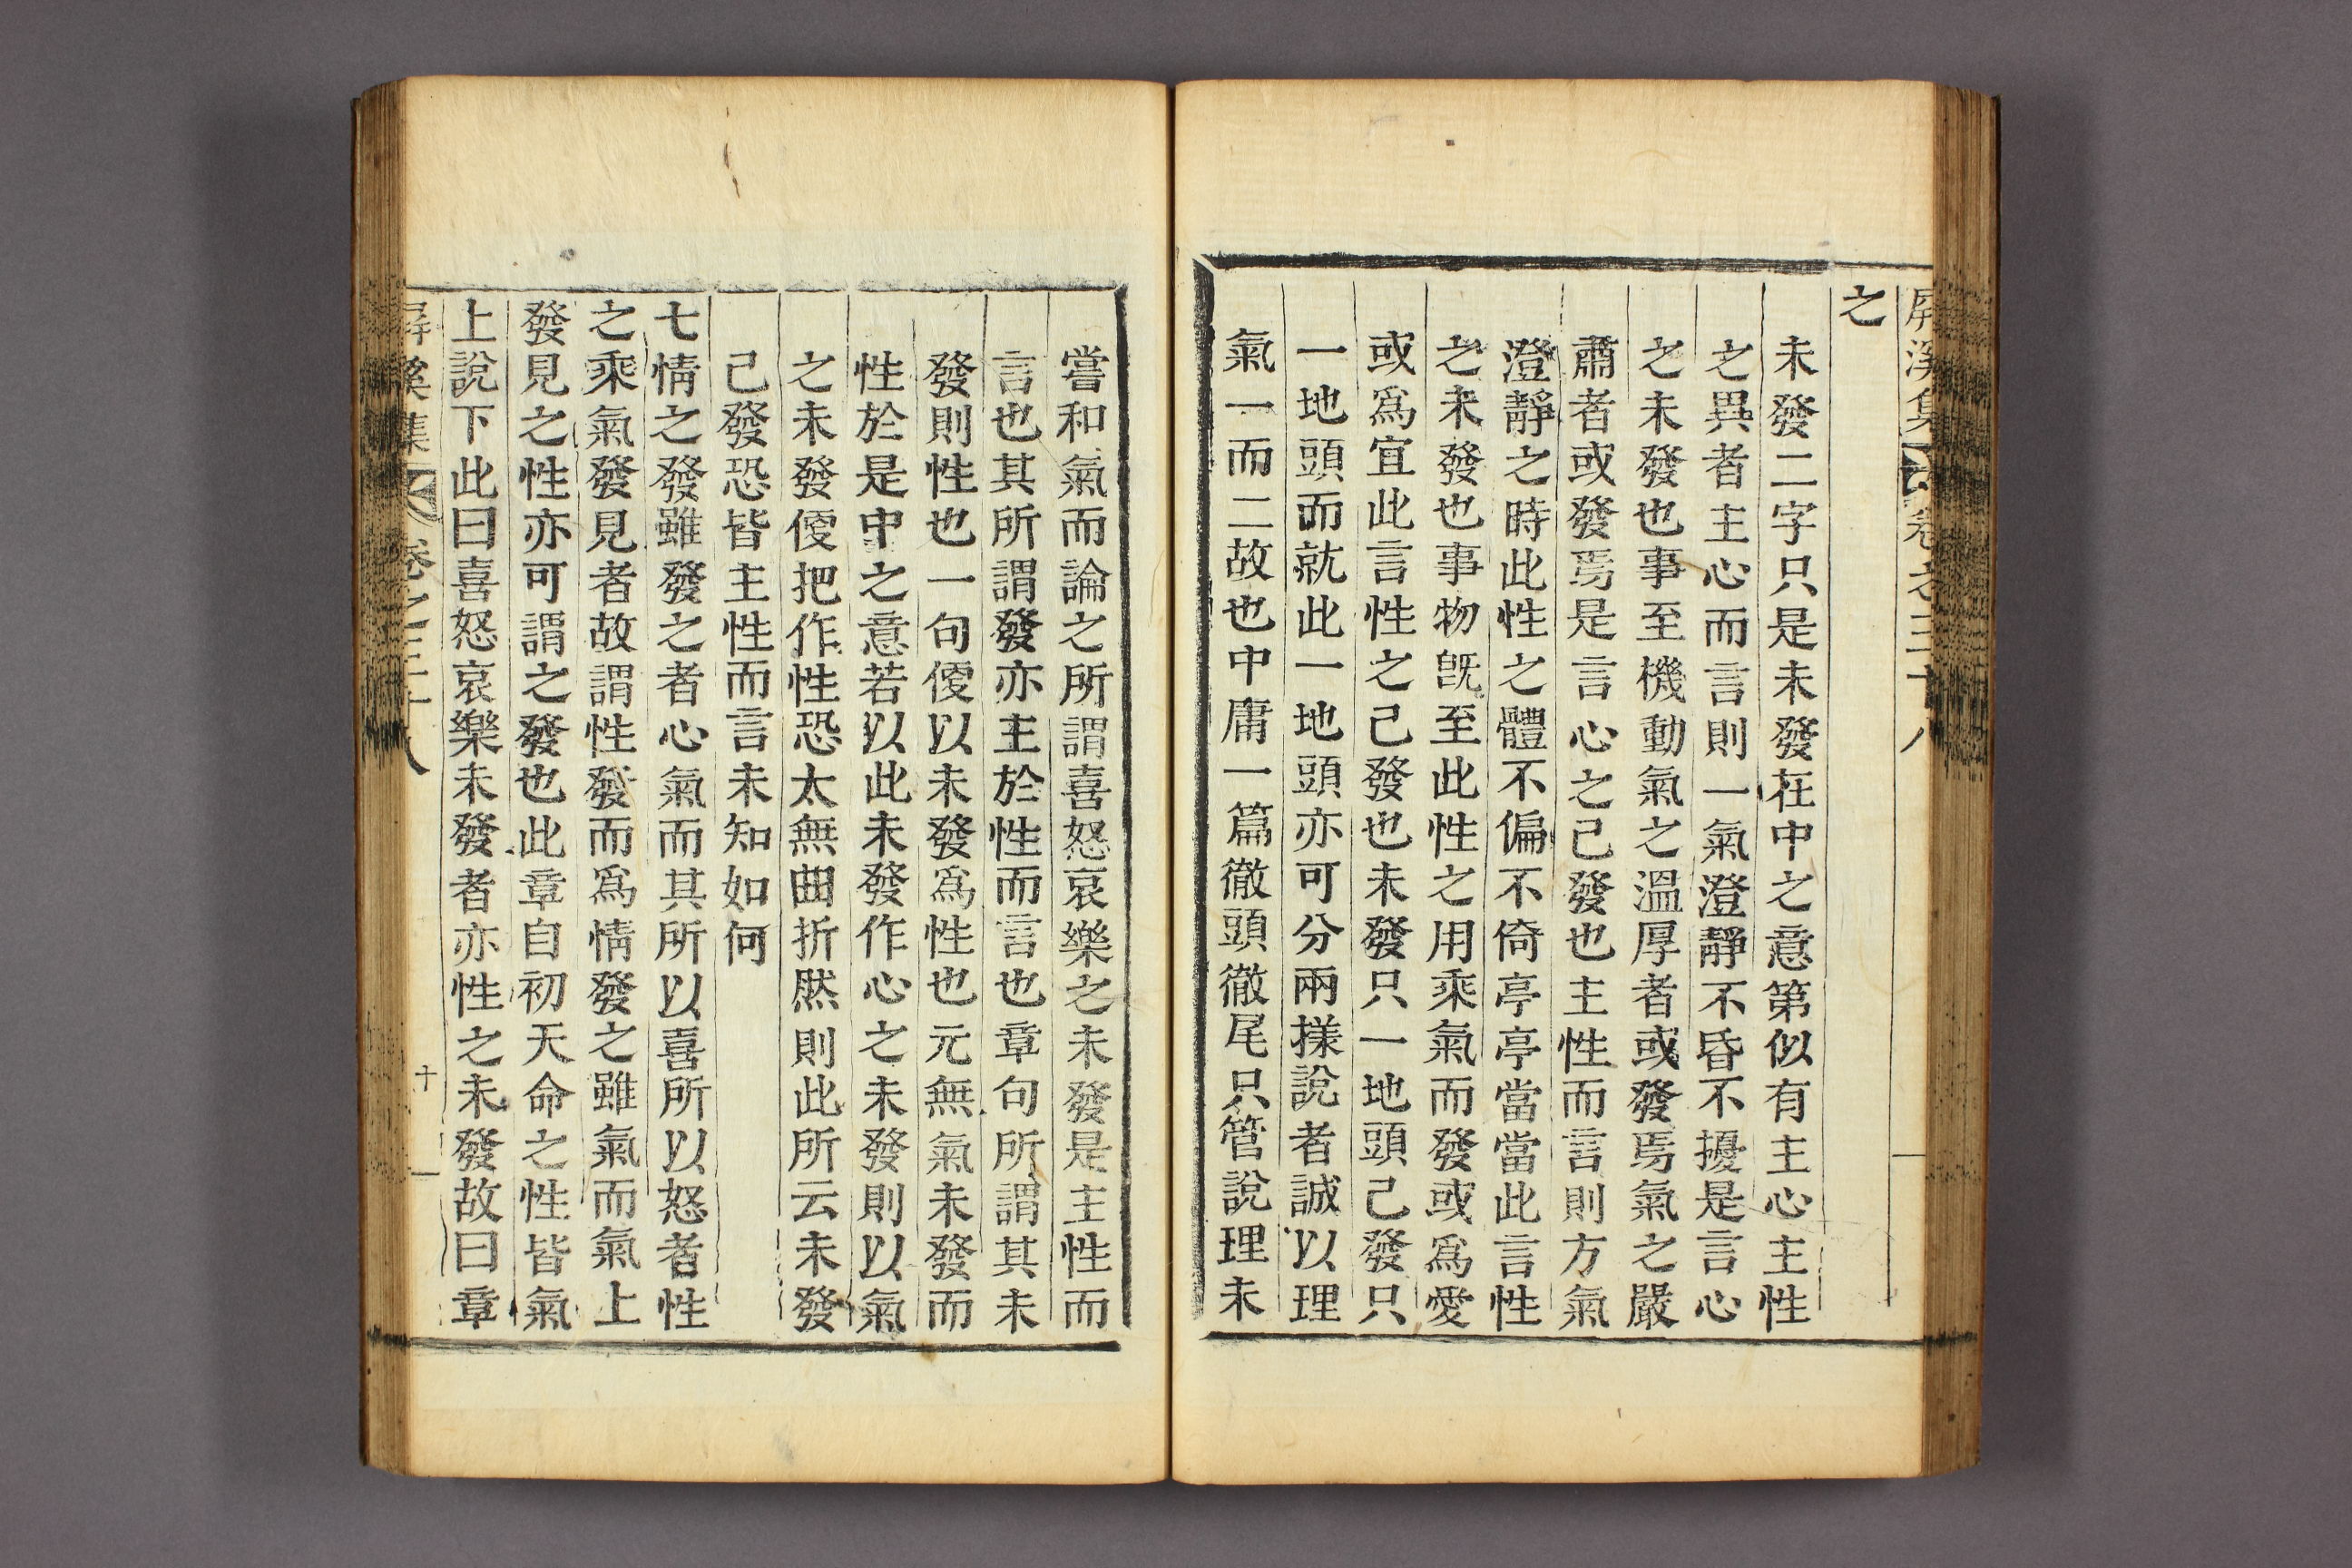 屛溪集 卷之三十八
之
未發二字只是未發在中之意第似有主心主性
之異者主心而言則一氣澄靜不昏不擾是言心
之未發也事至機動氣之溫厚者或發焉氣之嚴
肅者或發焉是言心之己發也主性而言則方氣
澄靜之時此性之體不偏不倚亭亭當當此言性
之未發也事物旣至此性之用乘氣而發或爲愛
或爲宜此言性之己發也未發只一地頭己發只
一地頭而就此一地頭亦可分兩㨾說者誠以理
氣一而二故也中庸一篇徹頭徹尾只管說理未
嘗和氣而論之所謂喜怒哀樂之未發是主性而
言也其所謂發亦主於性而言也章句所謂其未
發則性也一句便以未發爲性也元無氣未發而
性於是中之意若以此未發作心之未發則以氣
之未發便把作性恐太無曲折然則此所云未發
己發恐皆主性而言未知如何
七情之發雖發之者心氣而其所以喜所以怒者性
之乘氣發見者故謂性發而爲情發之雖氣而氣上
發見之性亦可謂之發也此章自初天命之性皆氣
上說下此曰喜怒哀樂未發者亦性之未發故曰章
屛溪集 卷之三十八 十一